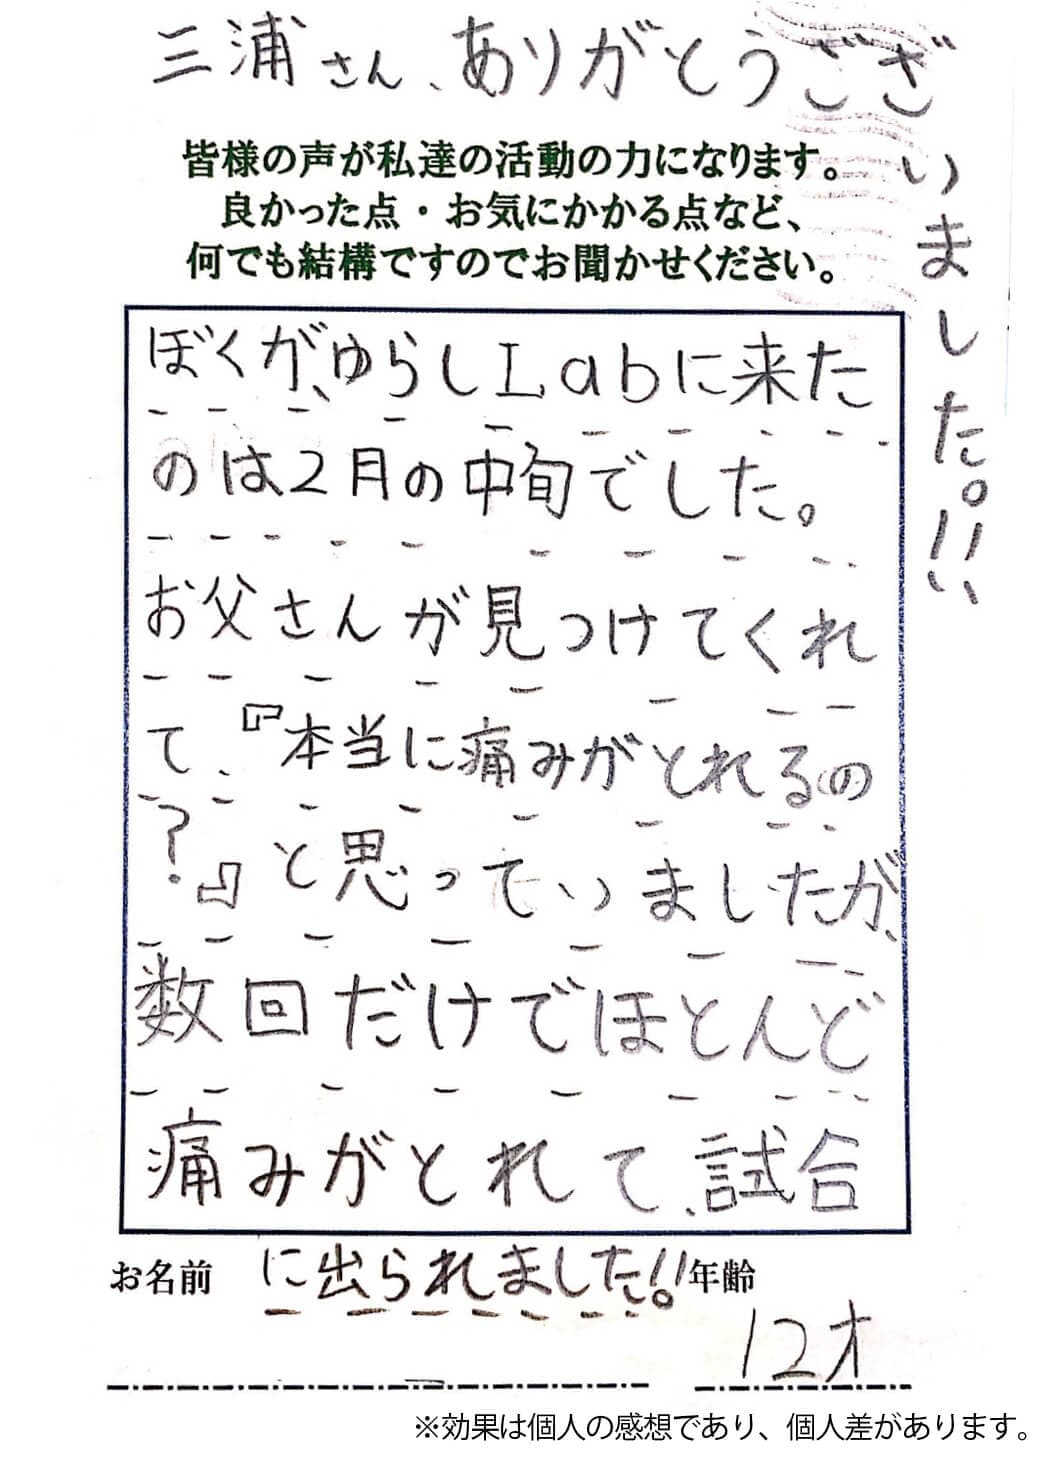 三浦さん、ありがとうございました。!!
皆様の声が私達の活動の力になります。
良かった点・お気にかかる点など、
何でも結構ですのでお聞かせください。
ぼくが、ゆらしLabに来た
のは2月の中旬でした。
お父さんが見つけてくれ
て、『本当に痛みがとれるの
?』と思っていましたが、
数回だけでほとんど
痛みがとれて、試合
に出られました!!。
お名前
年齢
12才
※効果は個人の感想であり、個人差があります。